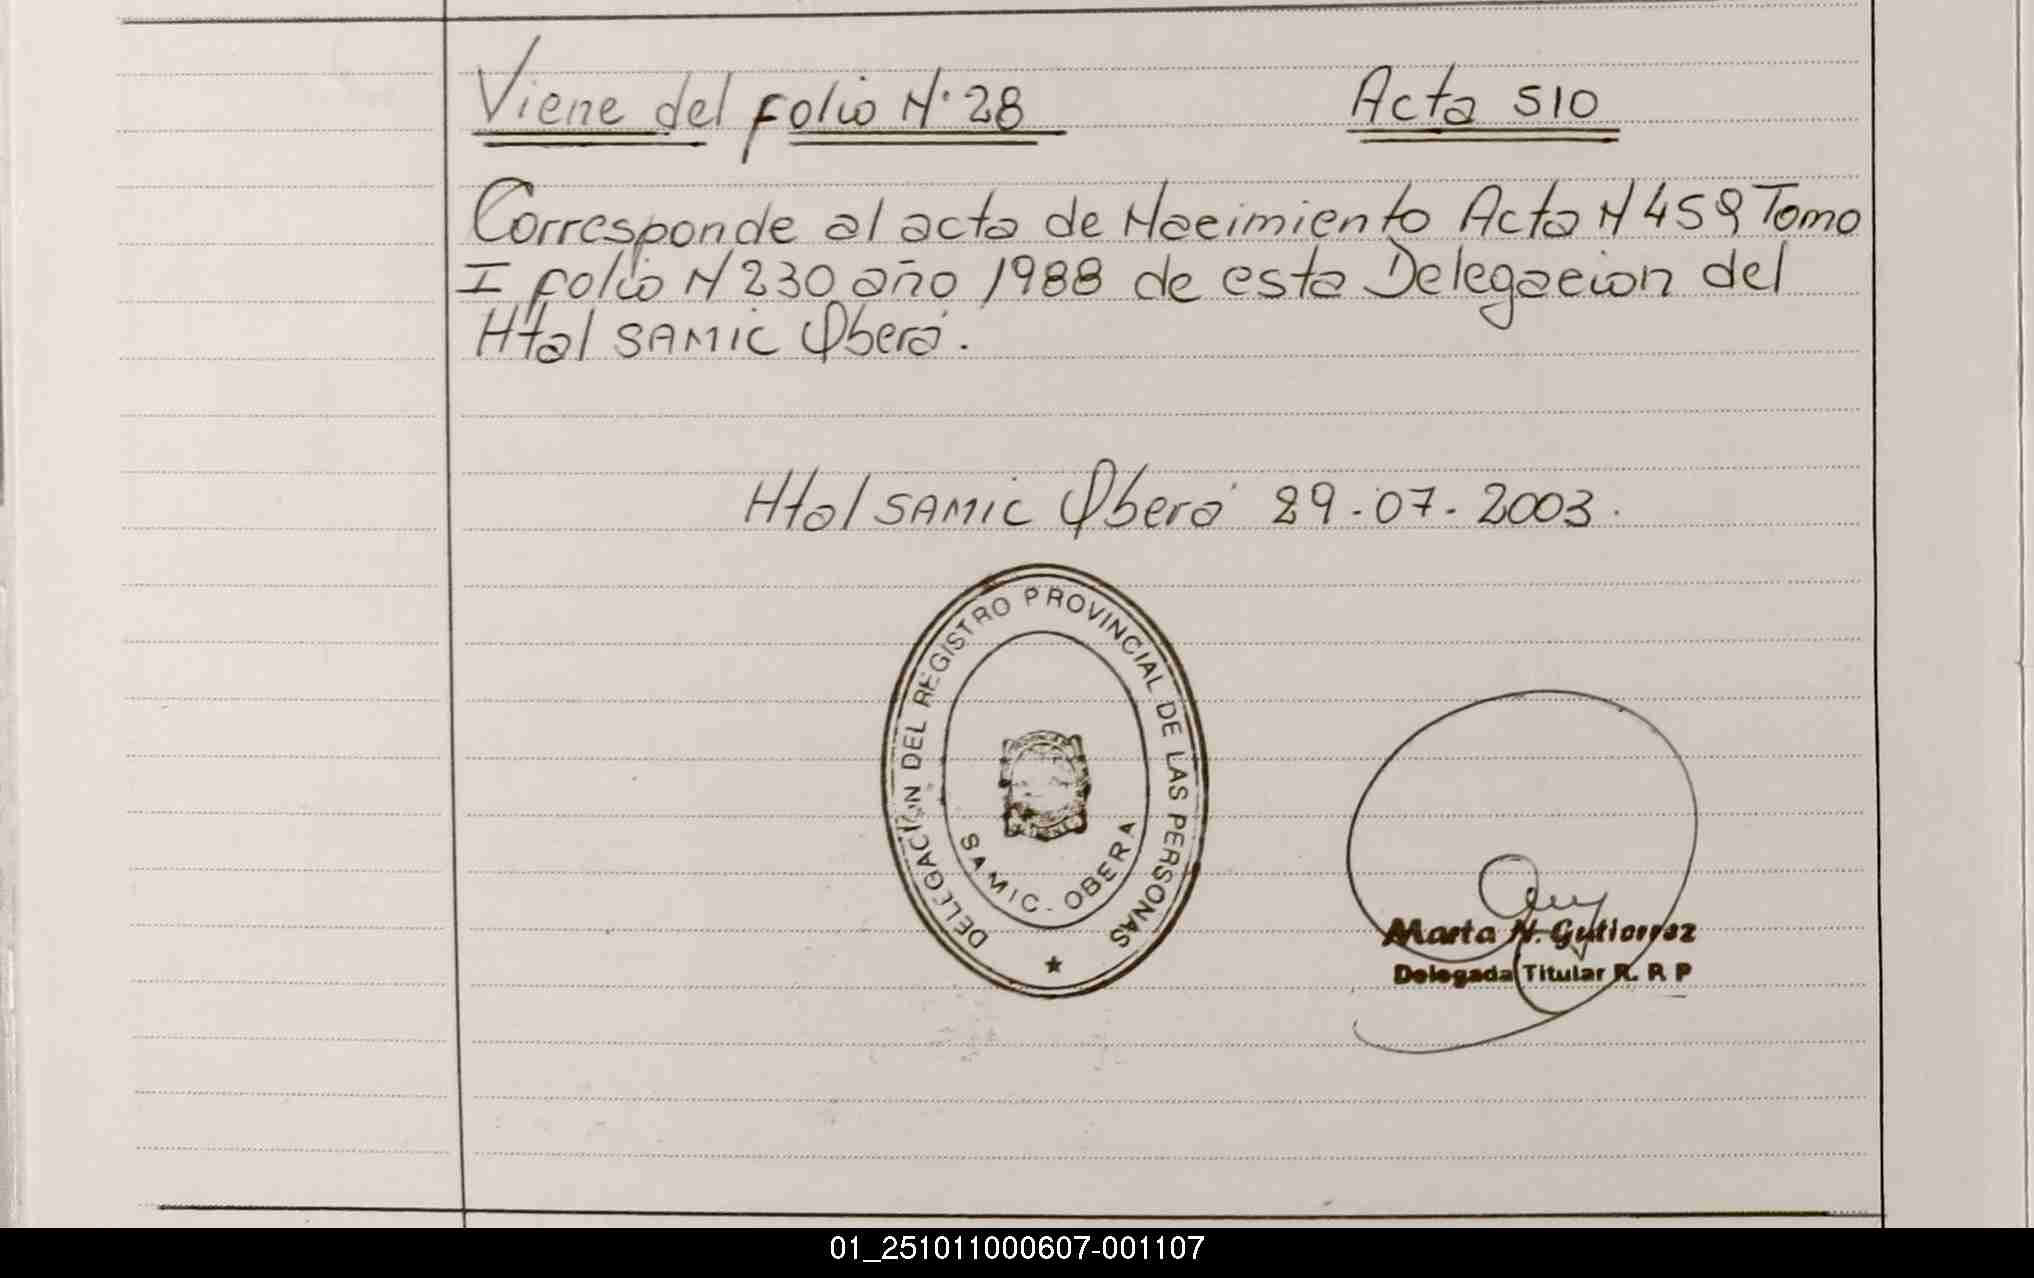 Viene del folio N° 28 Acta 510
Corresponde al acta de Nacimiento Acta N 459 Tomo
I folio N 230 año 1988 de esta Delegacion del
Htal SAMIC Oberá.
Htal SAMIC Oberá 29-07-2003.
DELEGACIÓN DEL REGISTRO PROVINCIAL DE LAS PERSONAS
SAMIC - OBERA
Marta N. Gutierrez
Delegada Titular R. P. P
01_251011000607-001107